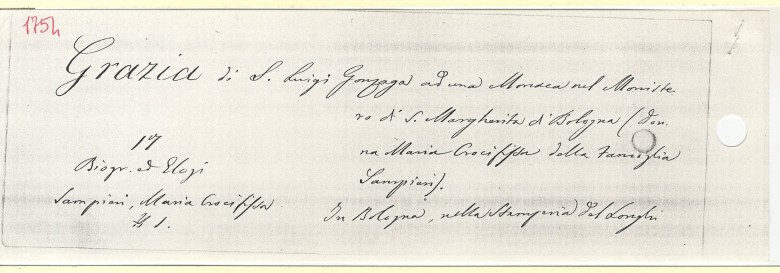 1754
Grazia di S. Luigi Gonzaga ad una Monaca nel Moniste-
ro di S. Margherita di Bologna (Don-
na Maria Crocifissa della Famiglia
Sampieri).
In Bologna, nella Stamperia del Longhi
17
Biogr. ed Elogi
Sampieri, Maria Crocifissa
1.